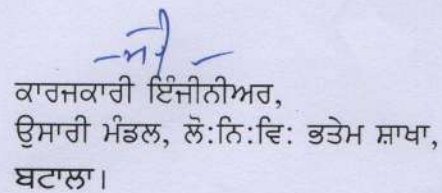 ਕਾਰਜਕਾਰੀ ਇੰਜੀਨੀਅਰ,
ਉਸਾਰੀ ਮੰਡਲ, ਲੋ:ਨਿ:ਵਿ: ਭਤੇਮ ਸ਼ਾਖਾ,
ਬਟਾਲਾ।